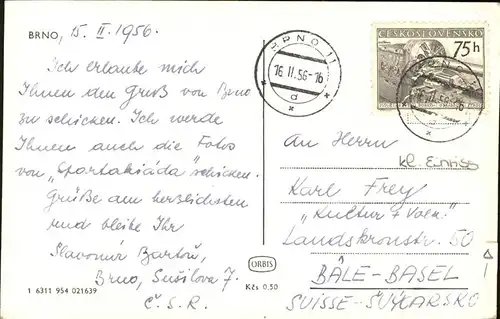 BRNO, 15. II. 1956.
Ich erlaube mich
Ihnen den Gruß von Brno
zu schicken. Ich werde
Ihnen auch die Fotos
von "Spartakiáda" schicken.
Grüße am herzlichsten
und bleibe Ihr
Slavomír Bartoš,
Brno, Sušilova 7.
Č. S. R.
1 6311 954 021639
ORBIS
Kčs 0,50
ČESKOSLOVENSKO
75 h
BRNO 11
16.II.56-16
d
An Herrn
Karl Frey
"Kultur + Volk"
Landskronstr. 50
BÂLE-BASEL
SUISSE-ŠVÝCARSKO